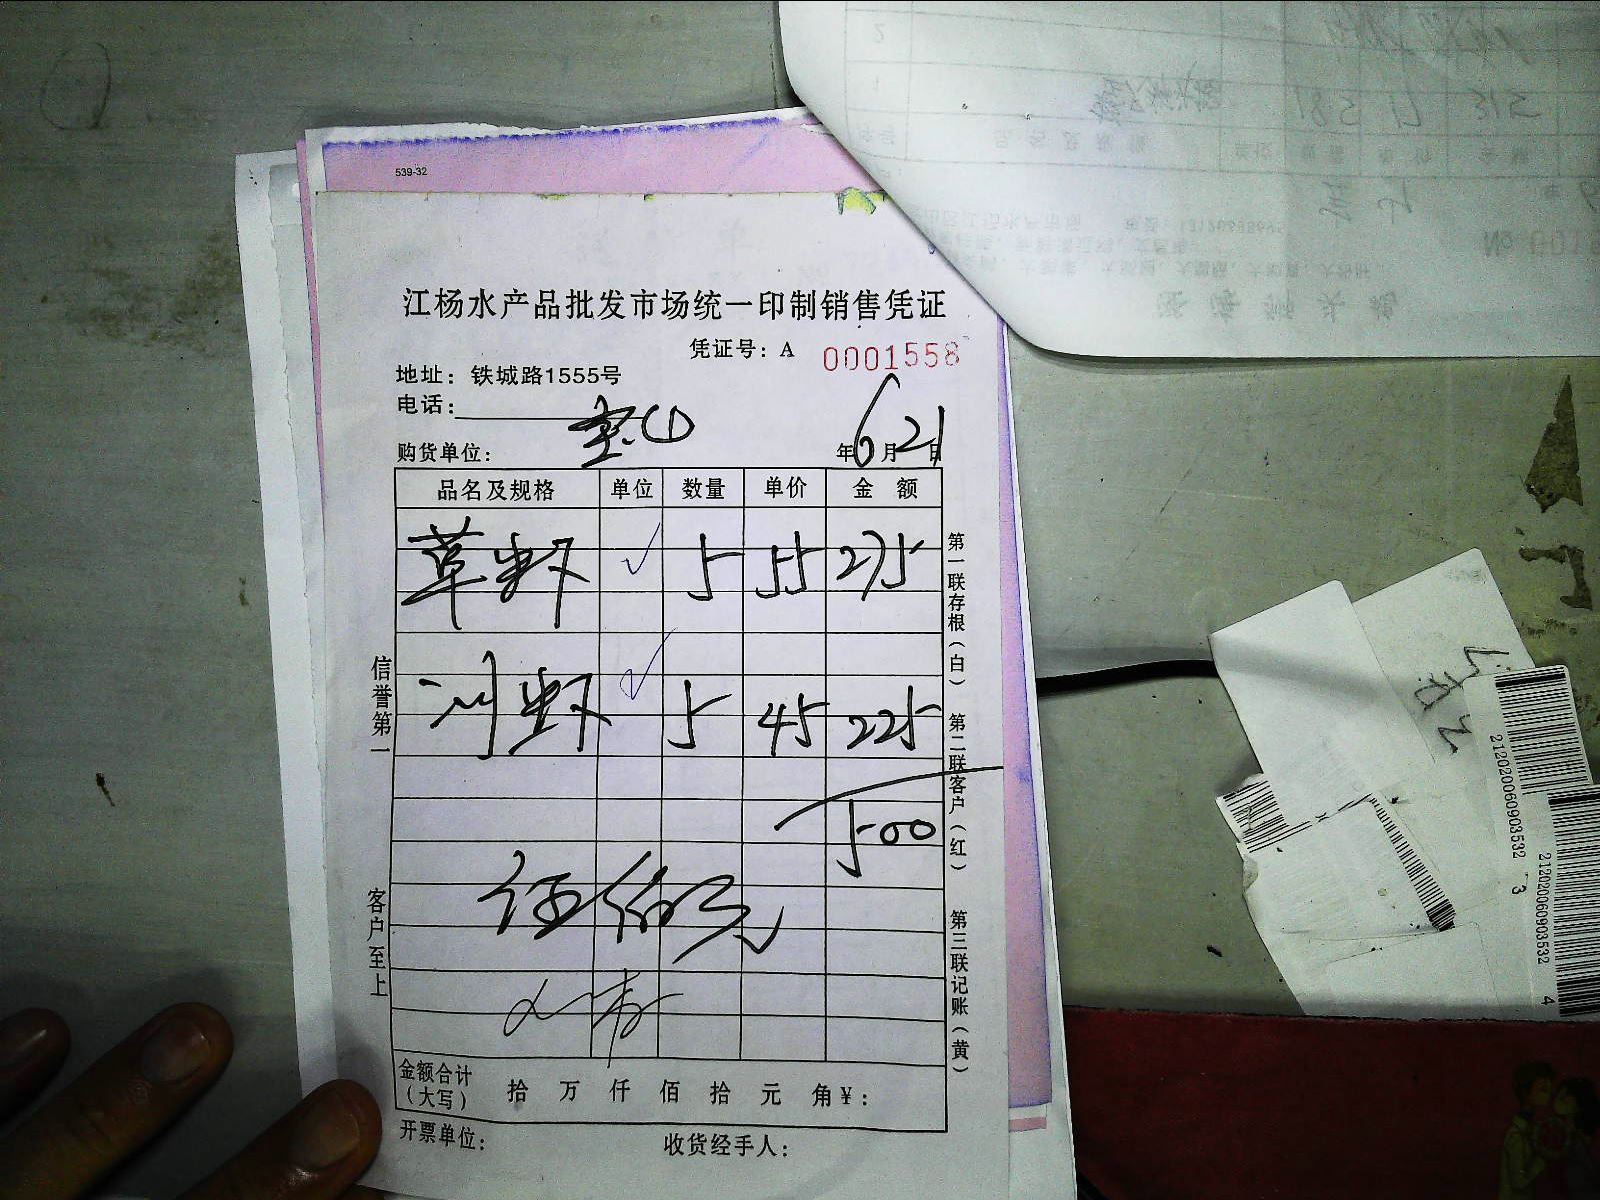 539-32
江杨水产品批发市场统一印制销售凭证
凭证号：A 0001558
地址：铁城路1555号
电话：
购货单位： 宝山 年6月21日
品名及规格 单位 数量 单价 金额
草虾 ✓ 5 55 275
✓ 5 45 225
500
伍佰元
金额合计（大写） 拾 万 仟 佰 拾 元 角￥：
开票单位： 收货经手人：
信誉第一 客户至上
第一联存根（白） 第二联客户（红） 第三联记账（黄）
212020060903532 3
212020060903532 4